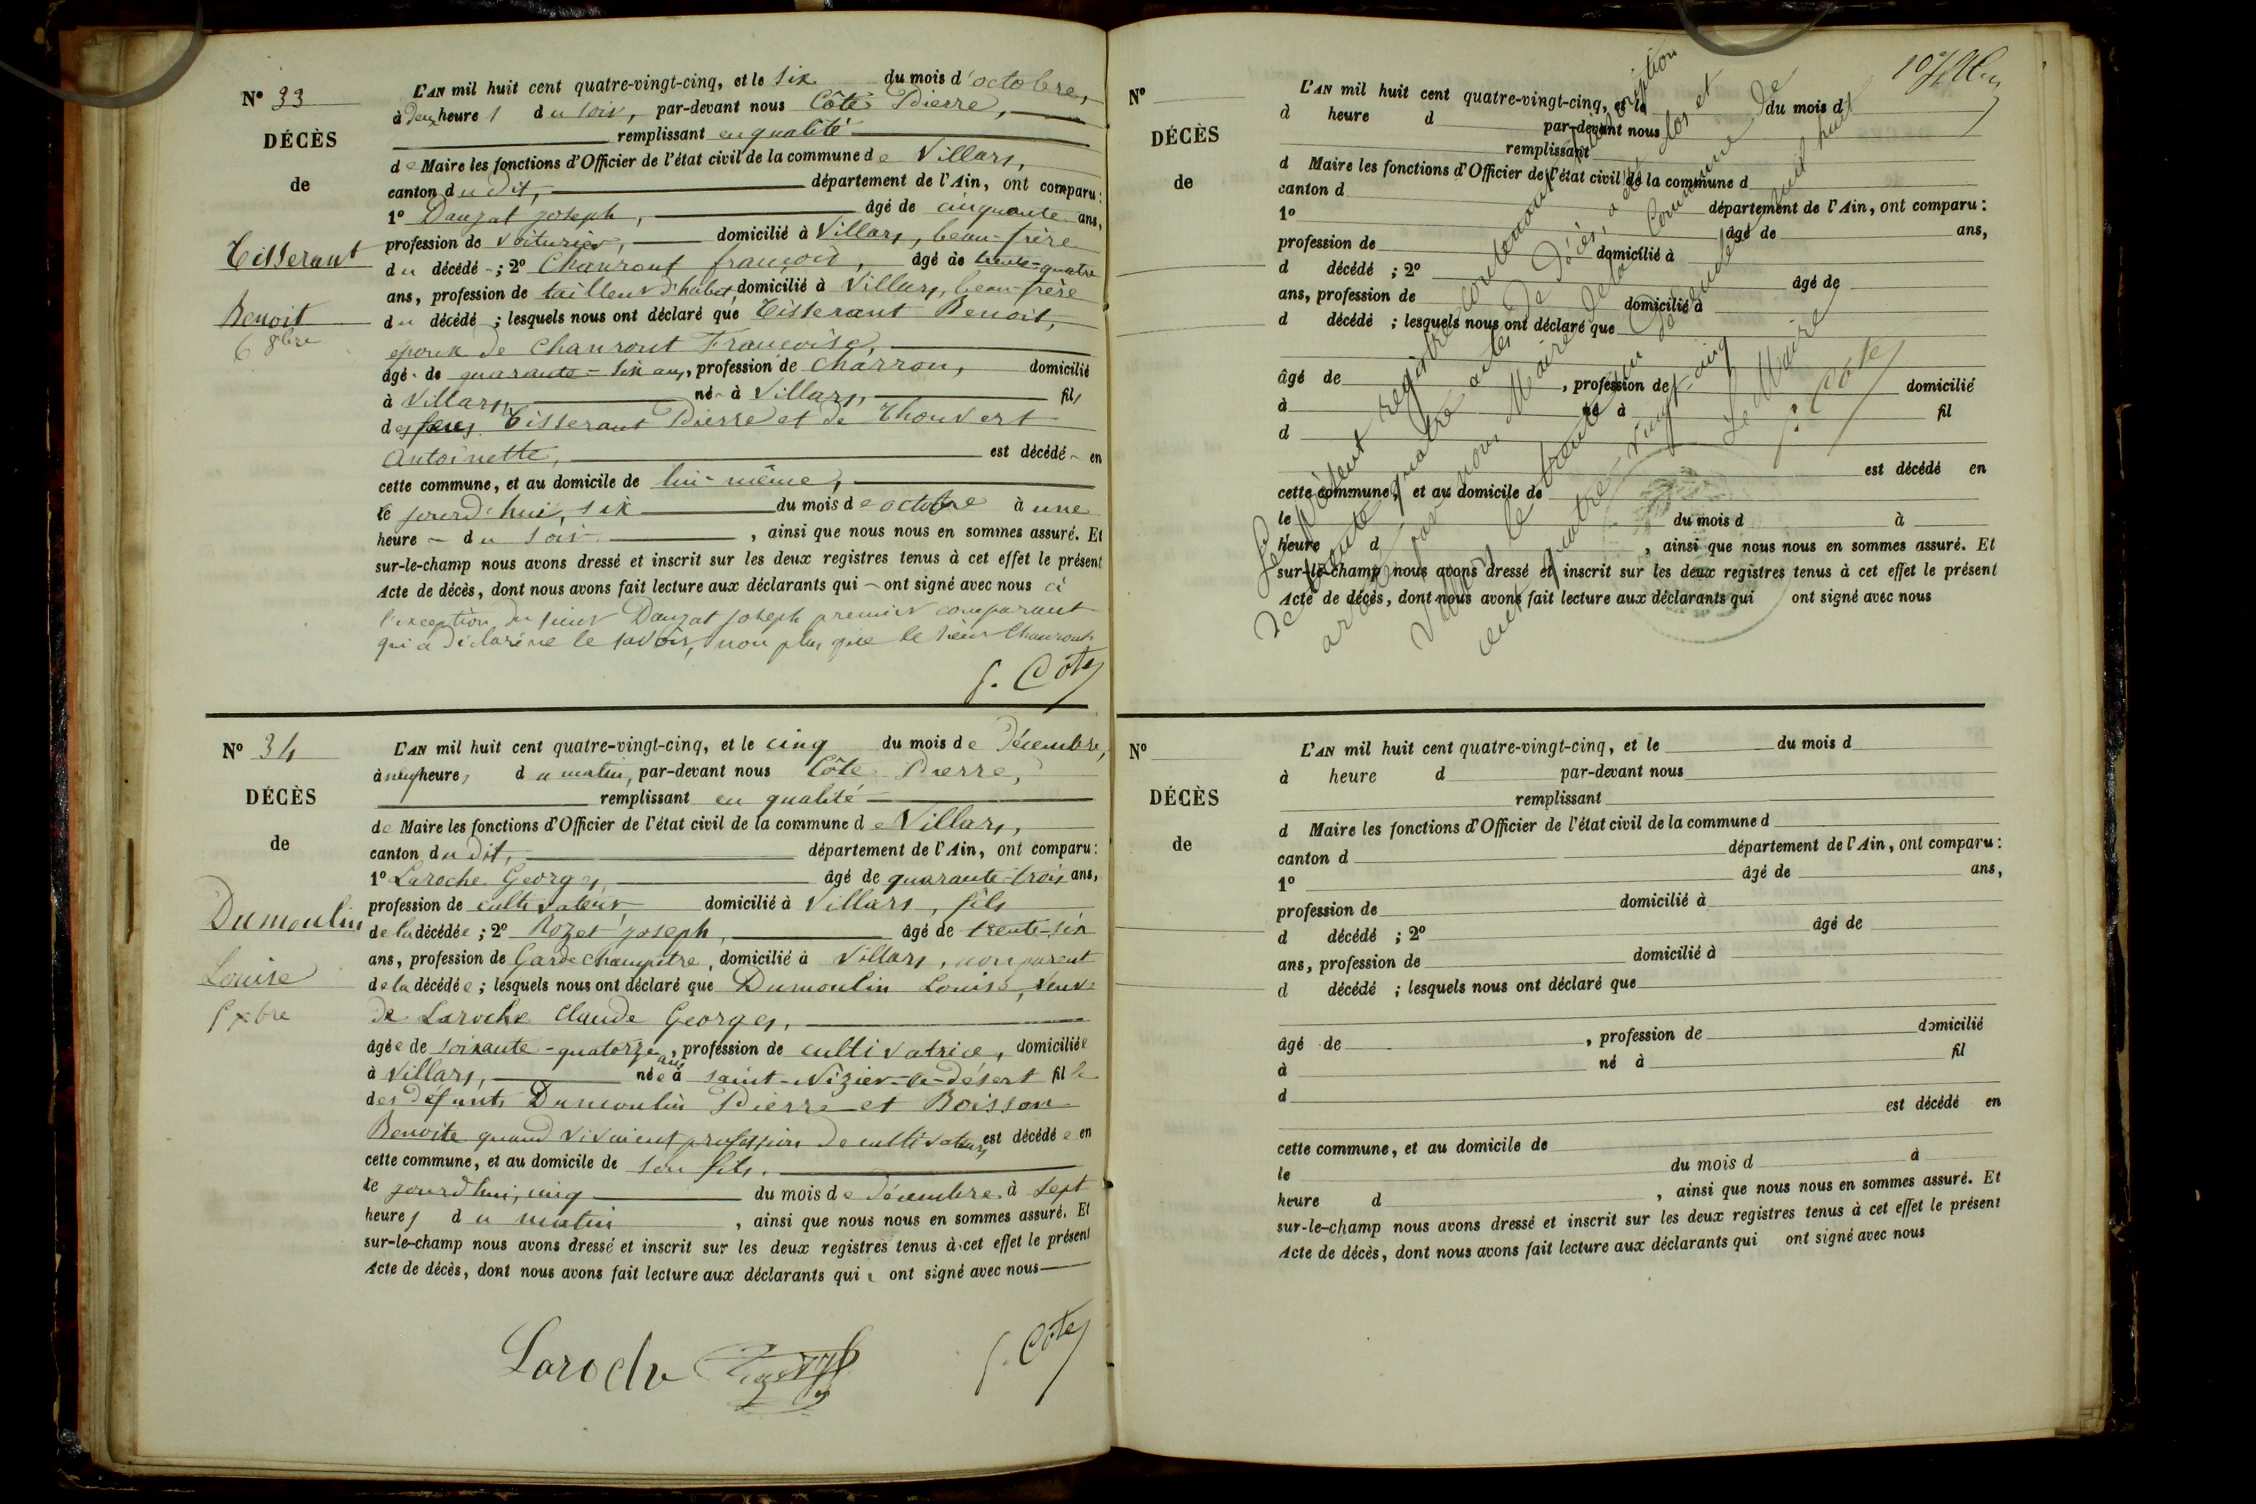 N° 33
DÉCÈS
de
Tisserant
Benoit
6 8bre
L'AN mil huit cent quatre-vingt-cinq, et le six du mois d'octobre,
à deux heures du soir, par-devant nous Côte Pierre,
remplissant en qualité
de Maire les fonctions d'Officier de l'état civil de la commune de Villars,
canton du dit, département de l'Ain, ont comparu :
1° Danzat joseph, âgé de cinquante ans,
profession de voiturier, domicilié à Villars, beau-frère
du décédé ; 2° Chanront françois, âgé de trente-quatre
ans, profession de tailleur d'habit, domicilié à Villars, beau-frère
du décédé ; lesquels nous ont déclaré que Tisserant Benoit,
époux de Chanront Françoise,
âgé de quarante-six ans, profession de charron, domicilié
à Villars, né à Villars, fils
des Tisserant Pierre et de Thouvert
Antoinette, est décédé en
cette commune, et au domicile de lui-même,
le jourd'hui, six du mois de octobre à une
heure du soir , ainsi que nous nous en sommes assuré. Et
sur-le-champ nous avons dressé et inscrit sur les deux registres tenus à cet effet le présent
Acte de décès, dont nous avons fait lecture aux déclarants qui ont signé avec nous à
l'exception du sieur Danzat joseph premier comparant
qui a déclaré ne le savoir, non plus que le sieur Chanront
P. Côte
N° 34
DÉCÈS
de
Dumoulin
Louise
5 xbre
L'AN mil huit cent quatre-vingt-cinq, et le cinq du mois de Décembre,
à neuf heures du matin, par-devant nous Côte Pierre,
remplissant en qualité
de Maire les fonctions d'Officier de l'état civil de la commune de Villars,
canton du dit, département de l'Ain, ont comparu :
1° Laroche Georges, âgé de quarante-trois ans,
profession de cultivateur domicilié à Villars, fils
de la décédée ; 2° Rozet joseph, âgé de trente-six
ans, profession de Garde champêtre, domicilié à Villars, non parent
de la décédée ; lesquels nous ont déclaré que Dumoulin Louise, veuve
de Laroche Claude Georges,
âgée de soixante-quatorze ans, profession de cultivatrice, domiciliée
à Villars, née à saint-Nizier-le-désert fille
des défunts Dumoulin Pierre et Boisson
Benoite quand vivaient profession de cultivateurs est décédée en
cette commune, et au domicile de son fils,
le jourd'hui, cinq du mois de décembre à sept
heures du matin , ainsi que nous nous en sommes assuré. Et
sur-le-champ nous avons dressé et inscrit sur les deux registres tenus à cet effet le présent
Acte de décès, dont nous avons fait lecture aux déclarants qui ont signé avec nous
Laroche
P. Côte
N°
DÉCÈS
de
L'AN mil huit cent quatre-vingt-cinq, et le du mois d
à heure d par-devant nous
remplissant
d Maire les fonctions d'Officier de l'état civil de la commune d
canton d département de l'Ain, ont comparu :
1° âgé de ans,
profession de domicilié à
d décédé ; 2° âgé de
ans, profession de domicilié à
d décédé ; lesquels nous ont déclaré que
âgé de , profession de domicilié
à né à fil
d
est décédé en
cette commune, et au domicile de
le du mois d à
heure d , ainsi que nous nous en sommes assuré. Et
sur-le-champ nous avons dressé et inscrit sur les deux registres tenus à cet effet le présent
Acte de décès, dont nous avons fait lecture aux déclarants qui ont signé avec nous
Le présent registre contenant l'inscription
de trente quatre actes de Décès, a été clos et
arrêté par nous Maire de la Commune de
Villars le trente un décembre mil huit
cent quatre vingt-cinq
Le Maire
P. Côte
N°
DÉCÈS
de
L'AN mil huit cent quatre-vingt-cinq, et le du mois d
à heure d par-devant nous
remplissant
d Maire les fonctions d'Officier de l'état civil de la commune d
canton d département de l'Ain, ont comparu :
1° âgé de ans,
profession de domicilié à
d décédé ; 2° âgé de
ans, profession de domicilié à
d décédé ; lesquels nous ont déclaré que
âgé de , profession de domicilié
à né à fil
d
est décédé en
cette commune, et au domicile de
le du mois d à
heure d , ainsi que nous nous en sommes assuré. Et
sur-le-champ nous avons dressé et inscrit sur les deux registres tenus à cet effet le présent
Acte de décès, dont nous avons fait lecture aux déclarants qui ont signé avec nous